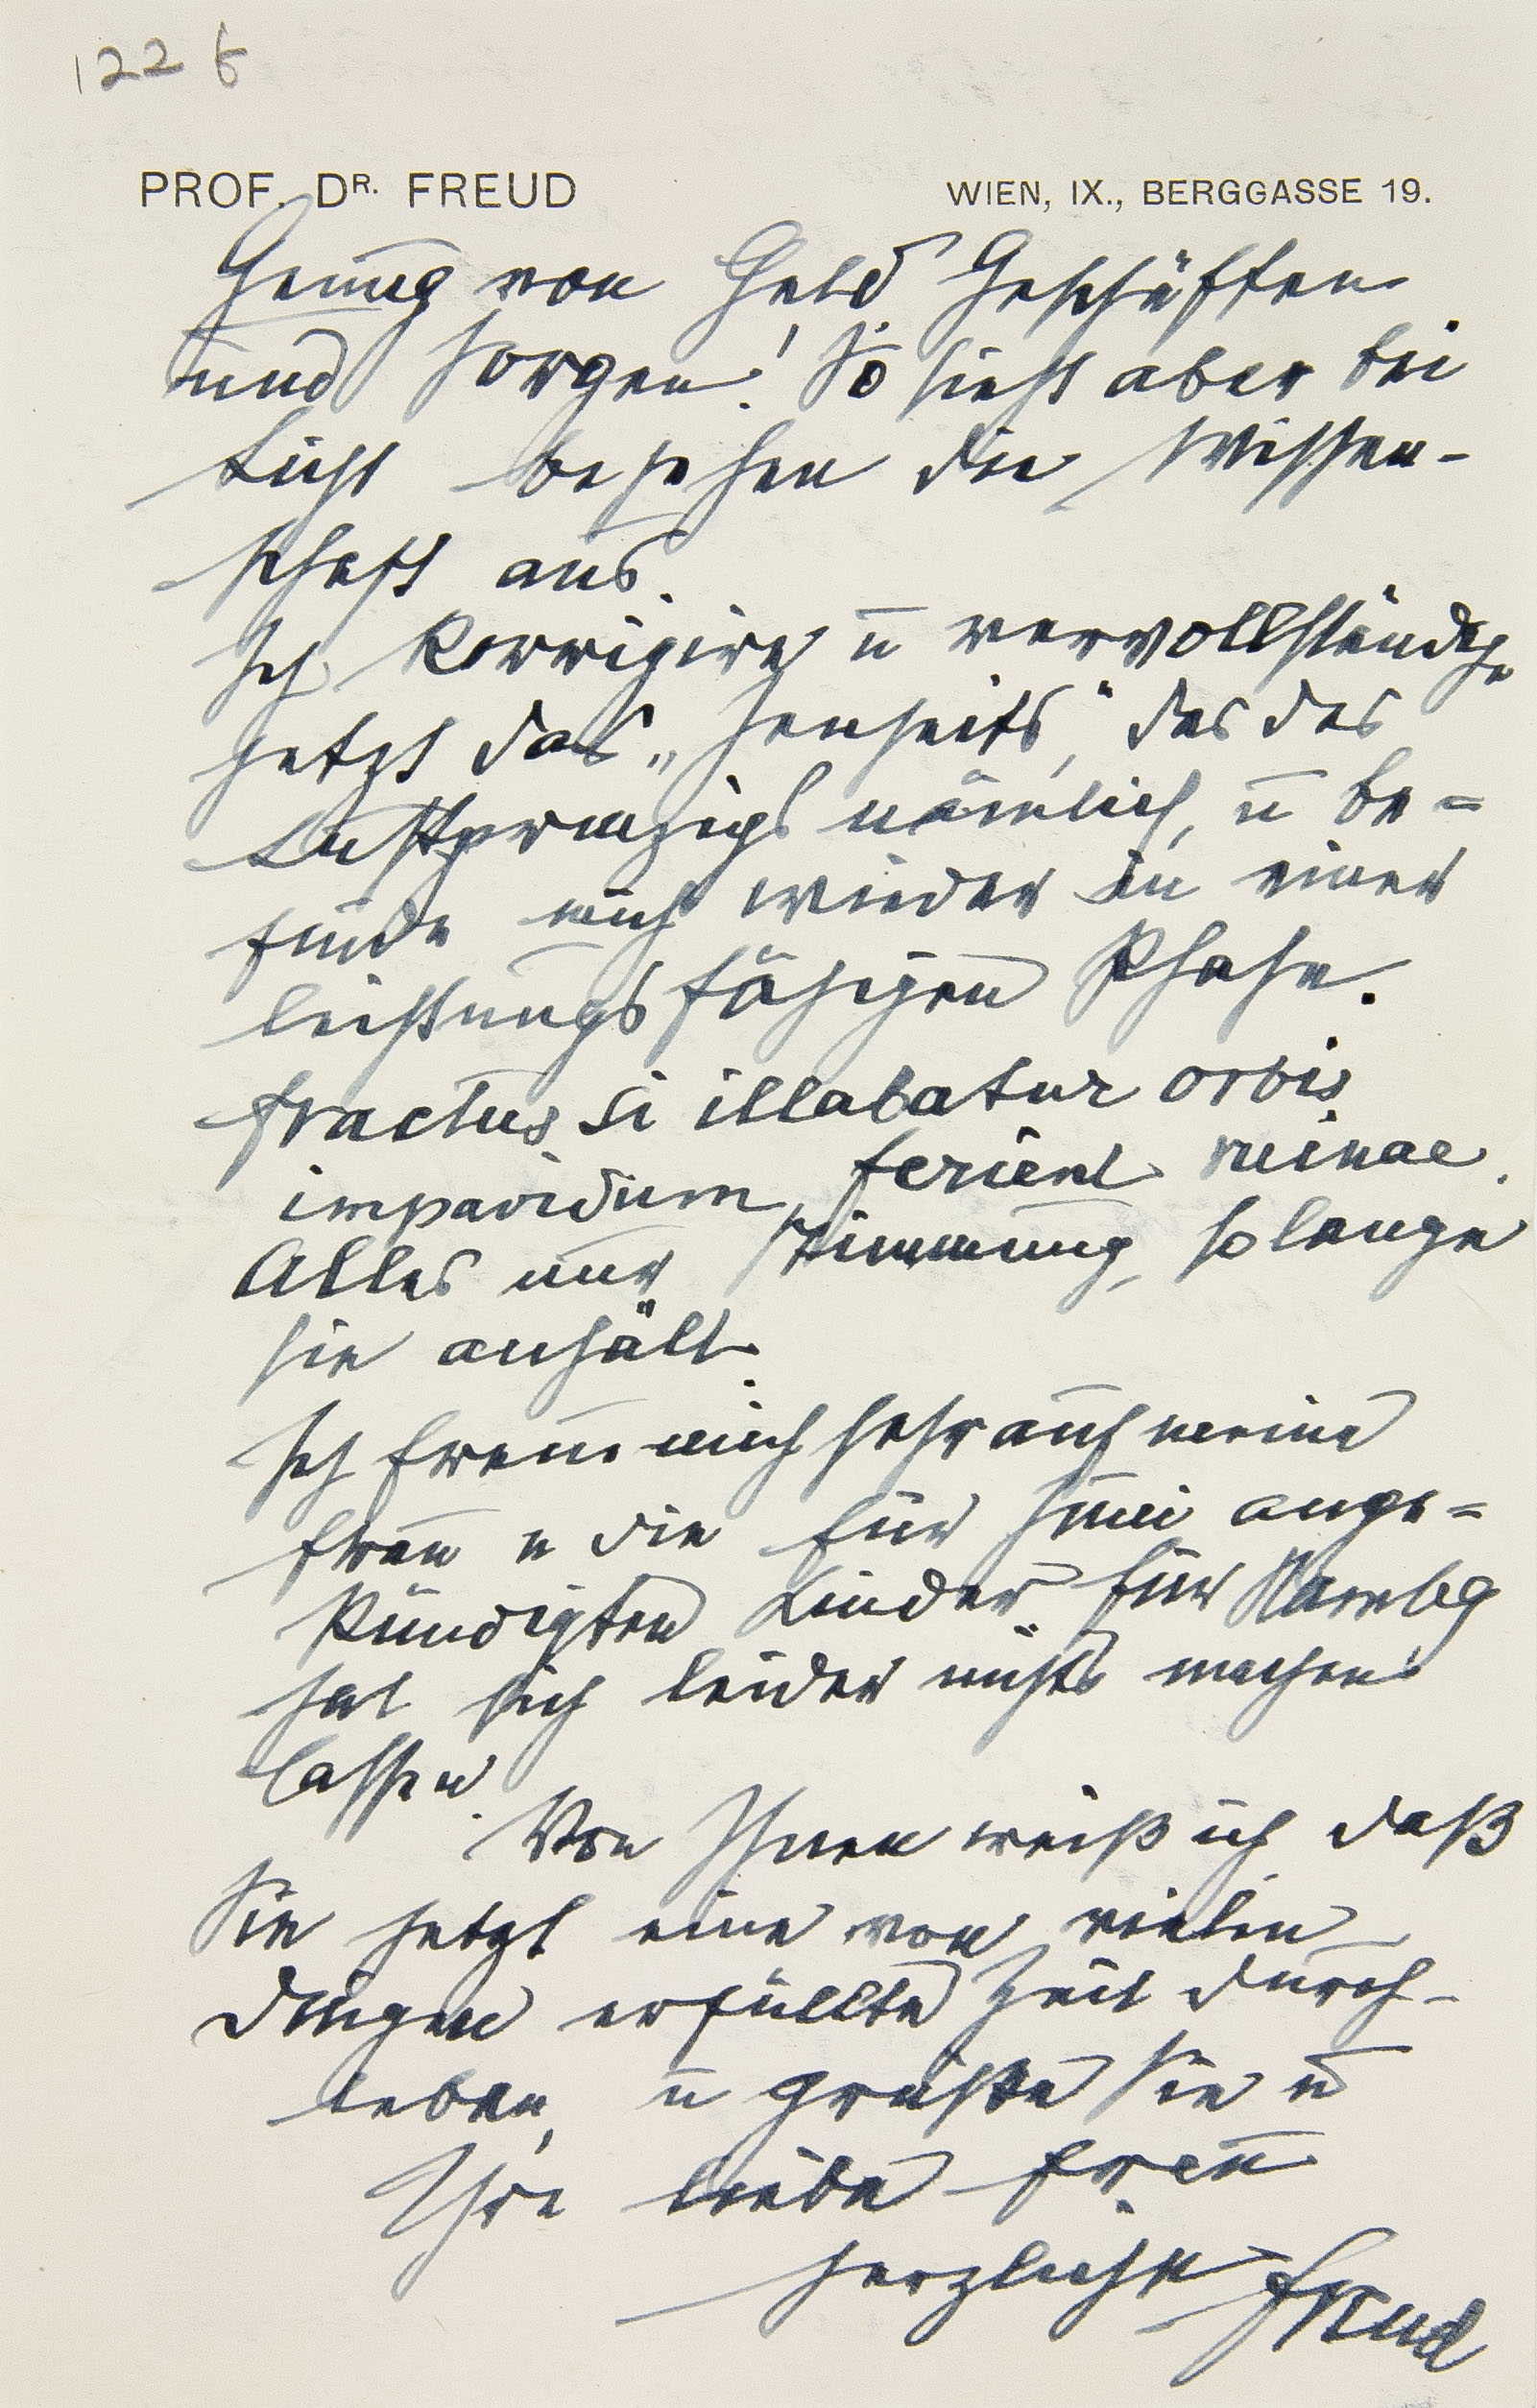 122 f
PROF. DR. FREUD WIEN, IX., BERGGASSE 19.
Genug von Geld Geschäften
und Sorgen! So sieht aber bei
Licht besehen die Wissen-
schaft aus.
Ich korrigire u vervollständige
jetzt das „Jenseits“, das des
Lustprinzips nämlich, u be=
finde mich wieder in einer
leistungsfähigen Phase.
fractus si illabatur orbis
impavidum ferient ruinae.
Alles nur Stimmung, solange
sie anhält.
Ich freue mich sehr auf meine
Frau u die für Juni ange=
kündigten Kinder. Für
hat sich leider nichts machen
lassen.
Von Ihnen weiß ich daß
Sie jetzt eine von vielen
Dingen erfüllte Zeit durch-
leben, u grüße Sie u
Ihre liebe Frau
herzlich Freud